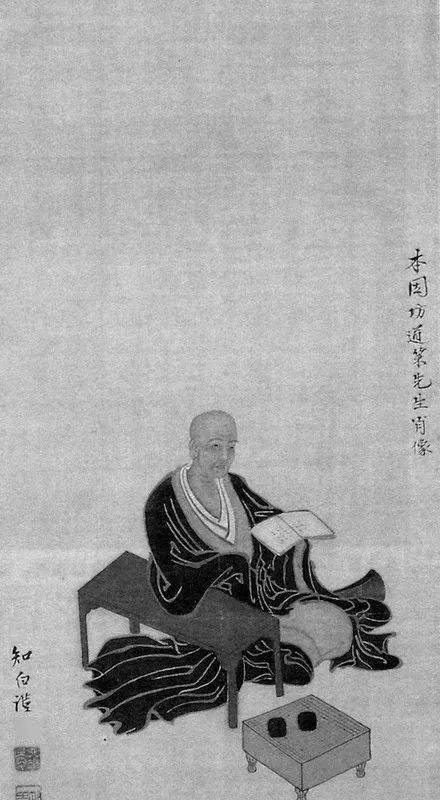 本因坊道策先生肖像
知白